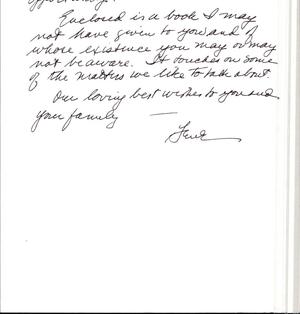 Enclosed is a book I may
not have given to you and of
whose existence you may or may
not be aware. It touches on some
of the matters we like to talk about.
Our loving best wishes to you and
your family —